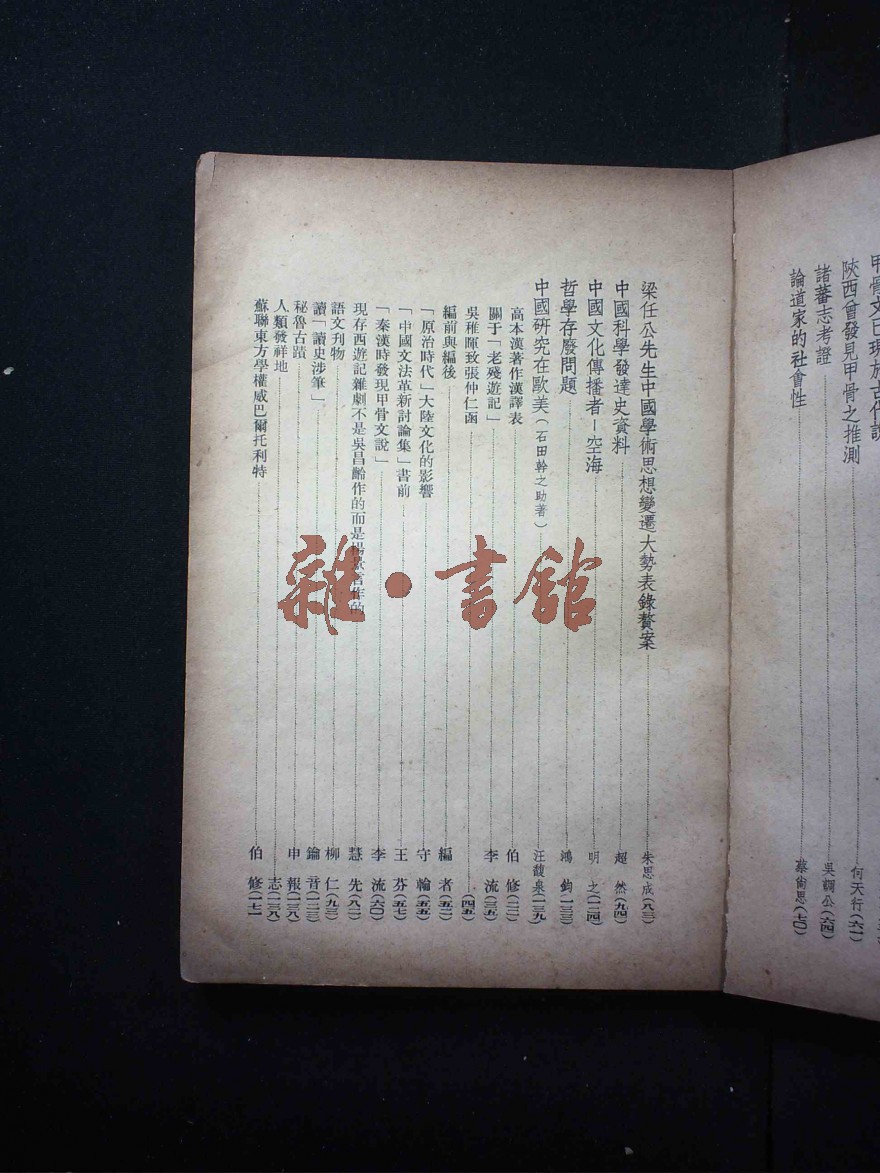 甲骨文已現於古代說
陝西曾發見甲骨之推測 何天行(六一)
諸蕃志考證 吳調公(六四)
論道家的社會性 蔡尙思(七〇)
梁任公先生中國學術思想變遷大勢表錄贅案 朱思成(八三)
中國科學發達史資料 超然(九四)
中國文化傳播者—空海 明之(一二四)
哲學存廢問題 鴻鈞(一三三)
中國研究在歐美(石田幹之助著) 汪馥泉(一三九)
高本漢著作漢譯表 伯修(二二)
關于「老殘遊記」 李流(三五)
吳稚暉致張仲仁函 (四五)
編前與編後 編者(五二)
「原治時代」大陸文化的影響 守輪(五五)
「中國文法革新討論集」書前 王芬(五七)
「秦漢時發現甲骨文說」 李流(六〇)
現存西遊記雜劇不是吳昌齡作的而是楊景言作的 慧先(八二)
語文刊物 柳仁(九三)
讀「讀史涉筆」 鑰音(一二三)
秘魯古蹟 申報(一三八)
人類發祥地 志(一三八)
蘇聯東方學權威巴爾托利特 伯修(一七一)
雜·書館